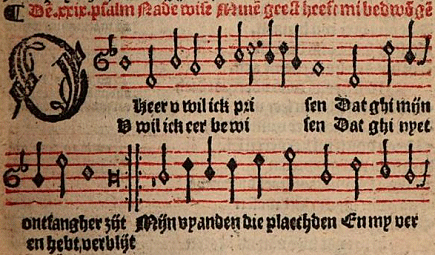 ¶ Dē. xxix. psalm Nade wise Minē geest heeft mi bedwōgē
O Heer v wil ick pri sen Dat ghi mijn
V wil ick eer bewi sen Dat ghi nyet
ontfangher zijt Mijn vyanden die plaechden En my ver
en hebt verblijt